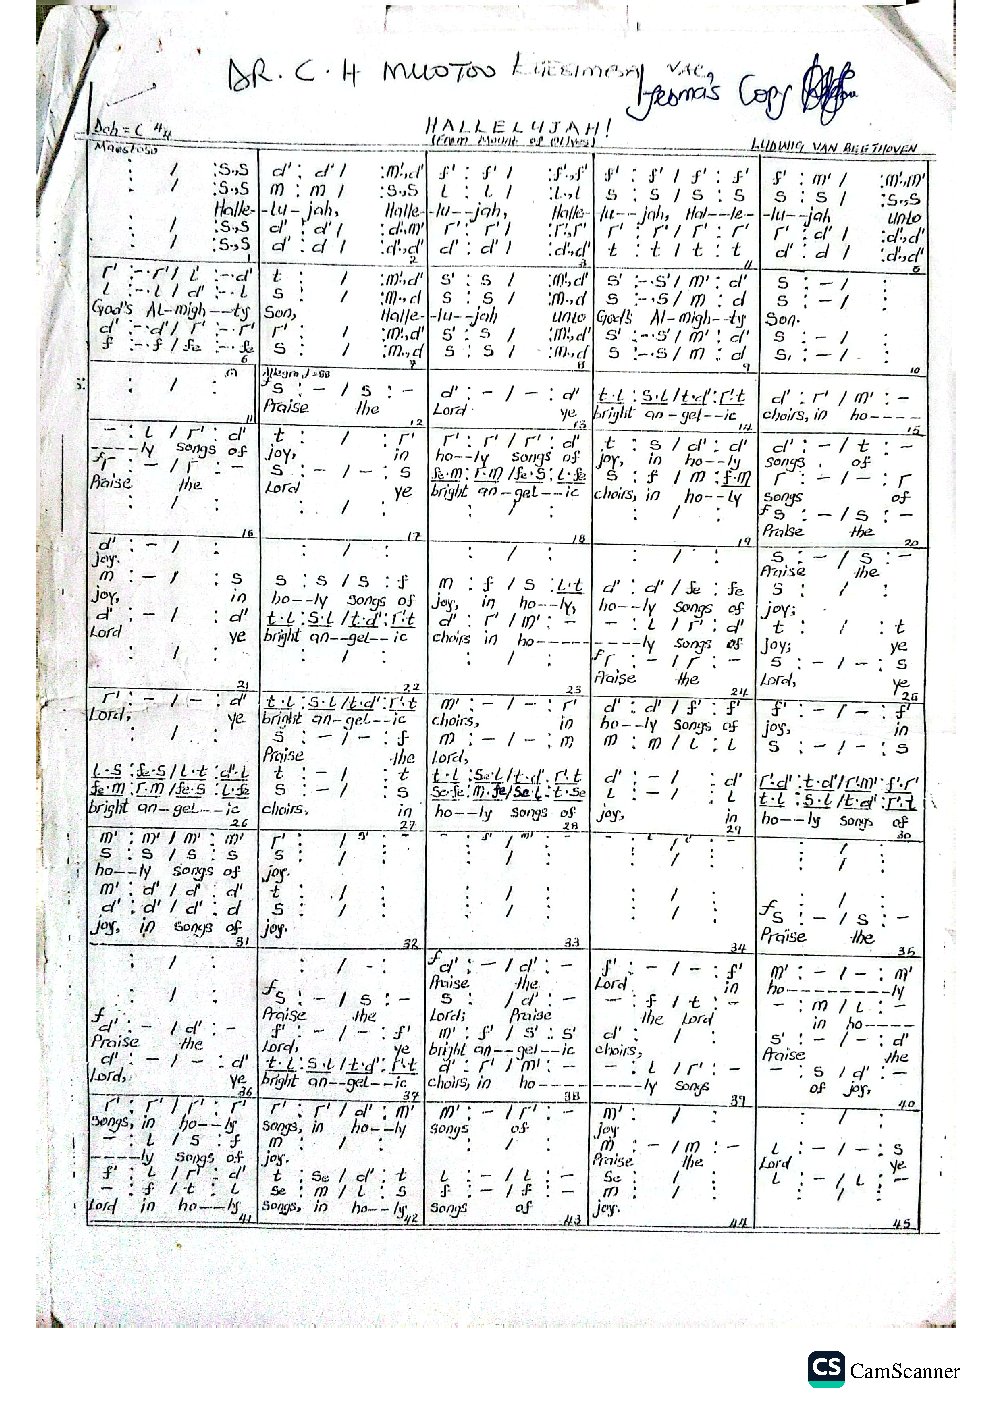 DR. C. H MUOTOO
Ifeoma's Copy
HALLELUJAH!
Doh = C 4/4
(From Mount of Olives)
LUDWIG VAN BEETHOVEN
Maestoso
: / :S.,S d' : d' / :m'.,d' f' : f' / :f'.,f' f' : f' / f' : f' f' : m' / :m'.,m'
: / :S.,S m : m / :S.,S l : l / :l.,l s : s / s : s s : s / :S.,S
Halle- -lu--jah, Halle- -lu--jah, Halle- -lu--jah, Hal--le- -lu--jah unto
: / :S.,S d' : d' / :d'.,m' r' : r' / :r'.,r' r' : r' / r' : r' r' : d' / :d'.,d'
: / :S.,S d' : d / :d'.,d' d' : d' / :d'.,d' t : t / t : t d' : d / :d'.,d'
1 2 3 4 5
r' :-.r'/ l' :-.d' t : / :m'.,d' s' : s / :m'.,d' s' :-.s'/ m' : d' s : - / :
l :-.l / d' :-.l s : / :m.,d s : s / :m.,d s :-.s / m : d s : - / :
God's Al-migh--ty Son, Halle- -lu--jah unto God's Al-migh--ty Son.
d' :-.d'/ r' :-.r' r' : / :m'.,d' s' : s / :m'.,d' s' :-.s'/ m' : d' s : - / :
f :-.f / fe :-.fe s : / :m.,d s : s / :m.,d s :-.s / m : d s, : - / :
6 7 8 9 10
Allegro ♩=88
: / : f s : - / s : - d' : - / - : d' t.l : s.l / t.d' : r'.t d' : r' / m' : -
Praise the Lord ye bright an-gel--ic choirs, in ho----
11 12 13 14 15
- : l / r' : d' t : / : r' r' : r' / r' : d' t : s / d' : d' d' : - / t : -
----ly songs of joy, in ho--ly songs of joy, in ho--ly songs of
f r : - / r : - s : - / - : s fe.m : r.m / fe.s : l.fe s : f / m : f.m r : - / - : r
Praise the Lord ye bright an-gel--ic choirs, in ho--ly songs of
: / : : / : : / : : / : f s : - / s : -
Praise the
16 17 18 19 20
d' : - / : : / : : / : : / : s : - / s : -
joy. Praise the
m : - / : s s : s / s : f m : f / s : l.t d' : d' / fe : fe s : / :
joy, in ho--ly songs of joy, in ho--ly, ho--ly songs of joy;
d' : - / - : d' t.l : s.l / t.d' : r'.t d' : r' / m' : - - : l / r' : d' t : / : t
Lord ye bright an--gel--ic choirs in ho-- --------ly songs of joy; ye
: / : : / : : / : f r : - / r : - s : - / - : s
Praise the Lord, ye
21 22 23 24 25
r' : - / - : d' t.l : s.l / t.d' : r'.t m' : - / - : r' d' : d' / f' : f' f' : - / - : f'
Lord, ye bright an-gel--ic choirs, in ho--ly songs of joy, in
: / : s : - / - : f m : - / - : m m : m / l : l s : - / - : s
Praise the Lord,
l.s : fe.s / l.t : d'.l t : - / : t t.l : se.l / t.d' : r'.t d' : - / : d' r'.d' : t.d' / r'.m' : f'.r'
fe.m : r.m / fe.s : l.fe s : - / : s se.fe : m.fe / se.l : t.se l : - / : l t.l : s.l / t.d' : r'.t
bright an-gel--ic choirs, in ho--ly songs of joy, in ho--ly songs of
26 27 28 29 30
m' : m' / m' : m' r' : / :
s : s / s : s s : / : : / : : / : : / :
ho--ly songs of joy.
m' : d' / d' : d' t : / : : / : : / : : / :
d' : d' / d' : d s : / : : / : : / : f s : - / s : -
joy, in songs of joy. Praise the
31 32 33 34 35
: / : : / - : f d' : - / d' : - f' : - / - : f' m' : - / - : m'
Praise the Lord in ho---------ly
: / : f s : - / s : - s : / d' : - - : f / t : - - : m / l : -
Praise the Lord; Praise the Lord in ho-----
f d' : - / d' : - f' : - / - : f' m' : f' / s' : s' d' : / : s' : - / - : d'
Praise the Lord, ye bright an--gel--ic choirs, Praise the
d' : - / - : d' t.l : s.l / t.d' : r'.t d' : r' / m' : - - : l / r' : - - : s / d' : -
Lord, ye bright an--gel--ic choirs, in ho-- --------ly songs of joy,
36 37 38 39 40
r' : r' / r' : r' r' : r' / d' : m' m' : - / r' : - m' : / : : / :
songs, in ho--ly songs, in ho--ly songs of joy
- : l / s : f m : / : : / : m : - / m : - l : - / - : s
-----ly songs of joy. Praise the Lord ye
f' : l / r' : d' t : se / d' : t l : - / l : - se : / : l : - / l : -
- : f / t : l se : m / l : s f : - / f : - m : / : : / :
Lord in ho--ly songs, in ho--ly songs of joy.
41 42 43 44 45
CS CamScanner